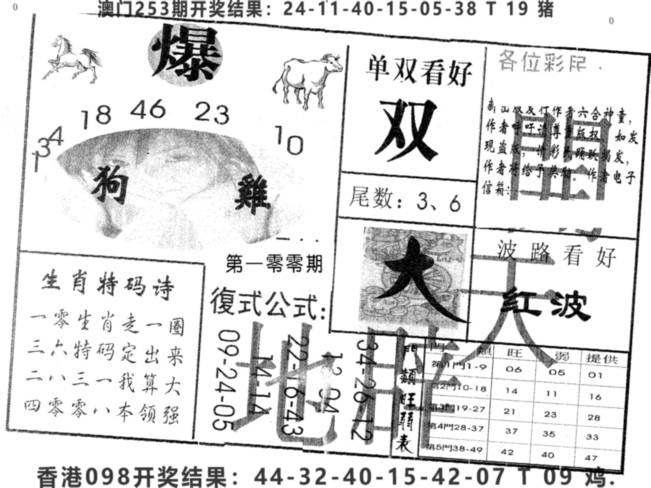 澳门253期开奖结果：24-11-40-15-05-38 T 19 猪
爆
34 18 46 23 10
1
狗 雞
第一零零期
单双看好
双
尾数：3、6
大
各位彩民．
作者电子
信箱：
波路看好
红波
生肖特码诗
一零生肖走一圈
三六特码定出来
二八三一我算大
四零零八本领强
復式公式：
09-24-05
14-14
22-6-43
12-04
34-26-12
門類旺弱表
門 類 旺 弱 提供
第1門1-9 06 05 01
第2門10-18 14 11 16
第3門19-27 21 23 28
第4門28-37 37 35 33
第5門38-49 42 40 47
香港098开奖结果：44-32-40-15-42-07 T 09 鸡.